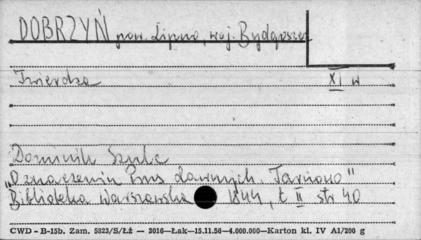 DOBRZYŃ pow. Lipno, woj. Bydgoszcz
Twierdza XI w
Dominik Szulc
"O znaczeniu Prus dawnych. Tarnowo"
Biblioteka Warszawska 1844, t II str 40
CWD - B-15b. Zam. 5823/S/ŁŻ — 2016—Łak—15.11.56—4.000.000—Karton kl. IV A1/200 g